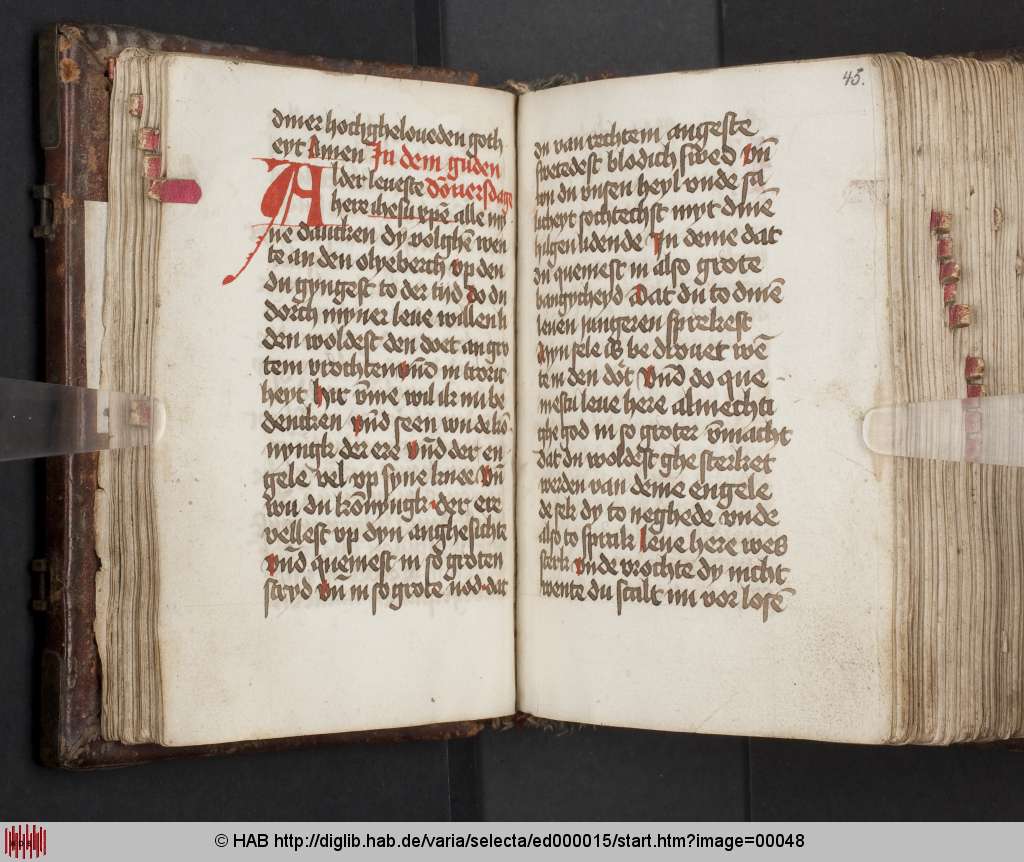 diner hochgheloueden goth
eyt Amen In dem guden
Alder leueste dōnersdage
here ihesu xpē alle my
ne dancken dy volghē wen
te an den olyeberch vp den
du gyngest to der tijd do du
dorch myner leue willen li
den woldest den doet an gro
tem vrochten vnd in troric
heyt hir vme wil ik nu be
dencken vnd seen wu de kō
nyngk der ere vnd der en
gele vel vp syne knee vn̄
wu du kōnyngk der ere
vellest vp dyn anghesichte
vnd quemest in so groten
stryd vn̄ in so grote nod dat
45.
du van rechtem angeste
swetedest blodich swed vn̄
wo du vnsen heyl vnde sa
licheyt sochtechst myt dinē
hilgen lidende In deme dat
du quemest in also grote
bangycheyd dat du to dinē
leuen jungeren sprekest
Myn sele is be drouet wē
te in den dōt vnd do que
mestu leue here almechti
ghe god in so groter vmacht
dat du woldest ghe sterket
werden van deme engele
de sek dy to neghede vnde
also to sprak leue here wes
sterk vnde vrochte dy nicht
wente du schalt nu vor losē
© HAB http://diglib.hab.de/varia/selecta/ed000015/start.htm?image=00048